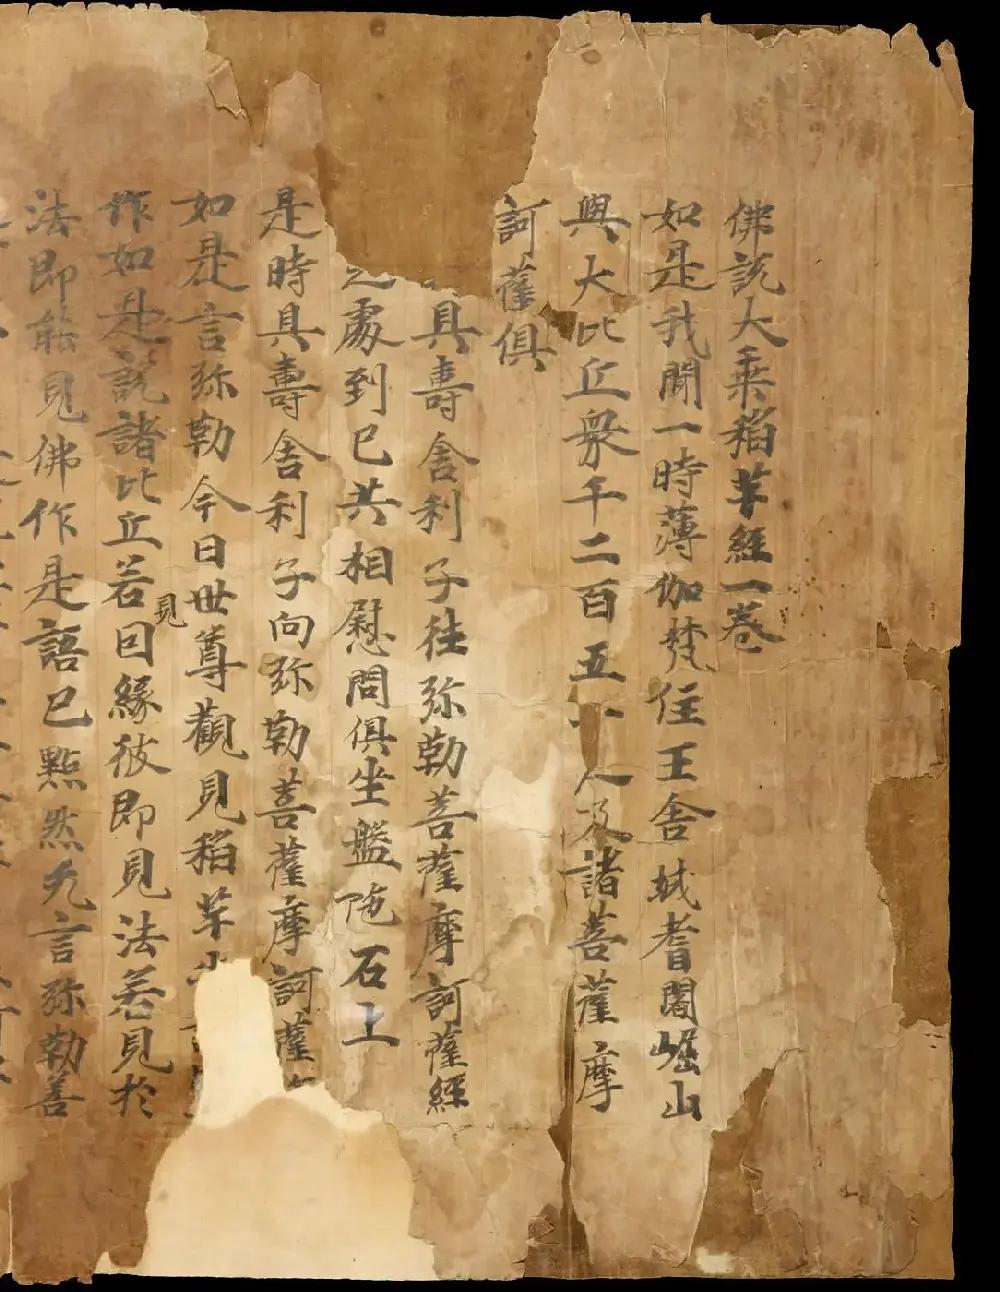 佛說大乘稻芉經一卷
如是我聞一時薄伽梵住王舍城耆闍崛山
與大比丘眾千二百五十人及諸菩薩摩
訶薩俱
具壽舍利子往弥勒菩薩摩訶薩經
之處到已共相慰問俱坐盤陁石上
是時具壽舍利子向弥勒菩薩摩訶薩
如是言弥勒今日世尊觀見稻芉
作如是說諸比丘若見因緣彼即見法若見於
法即能見佛作是語已黙然无言弥勒善